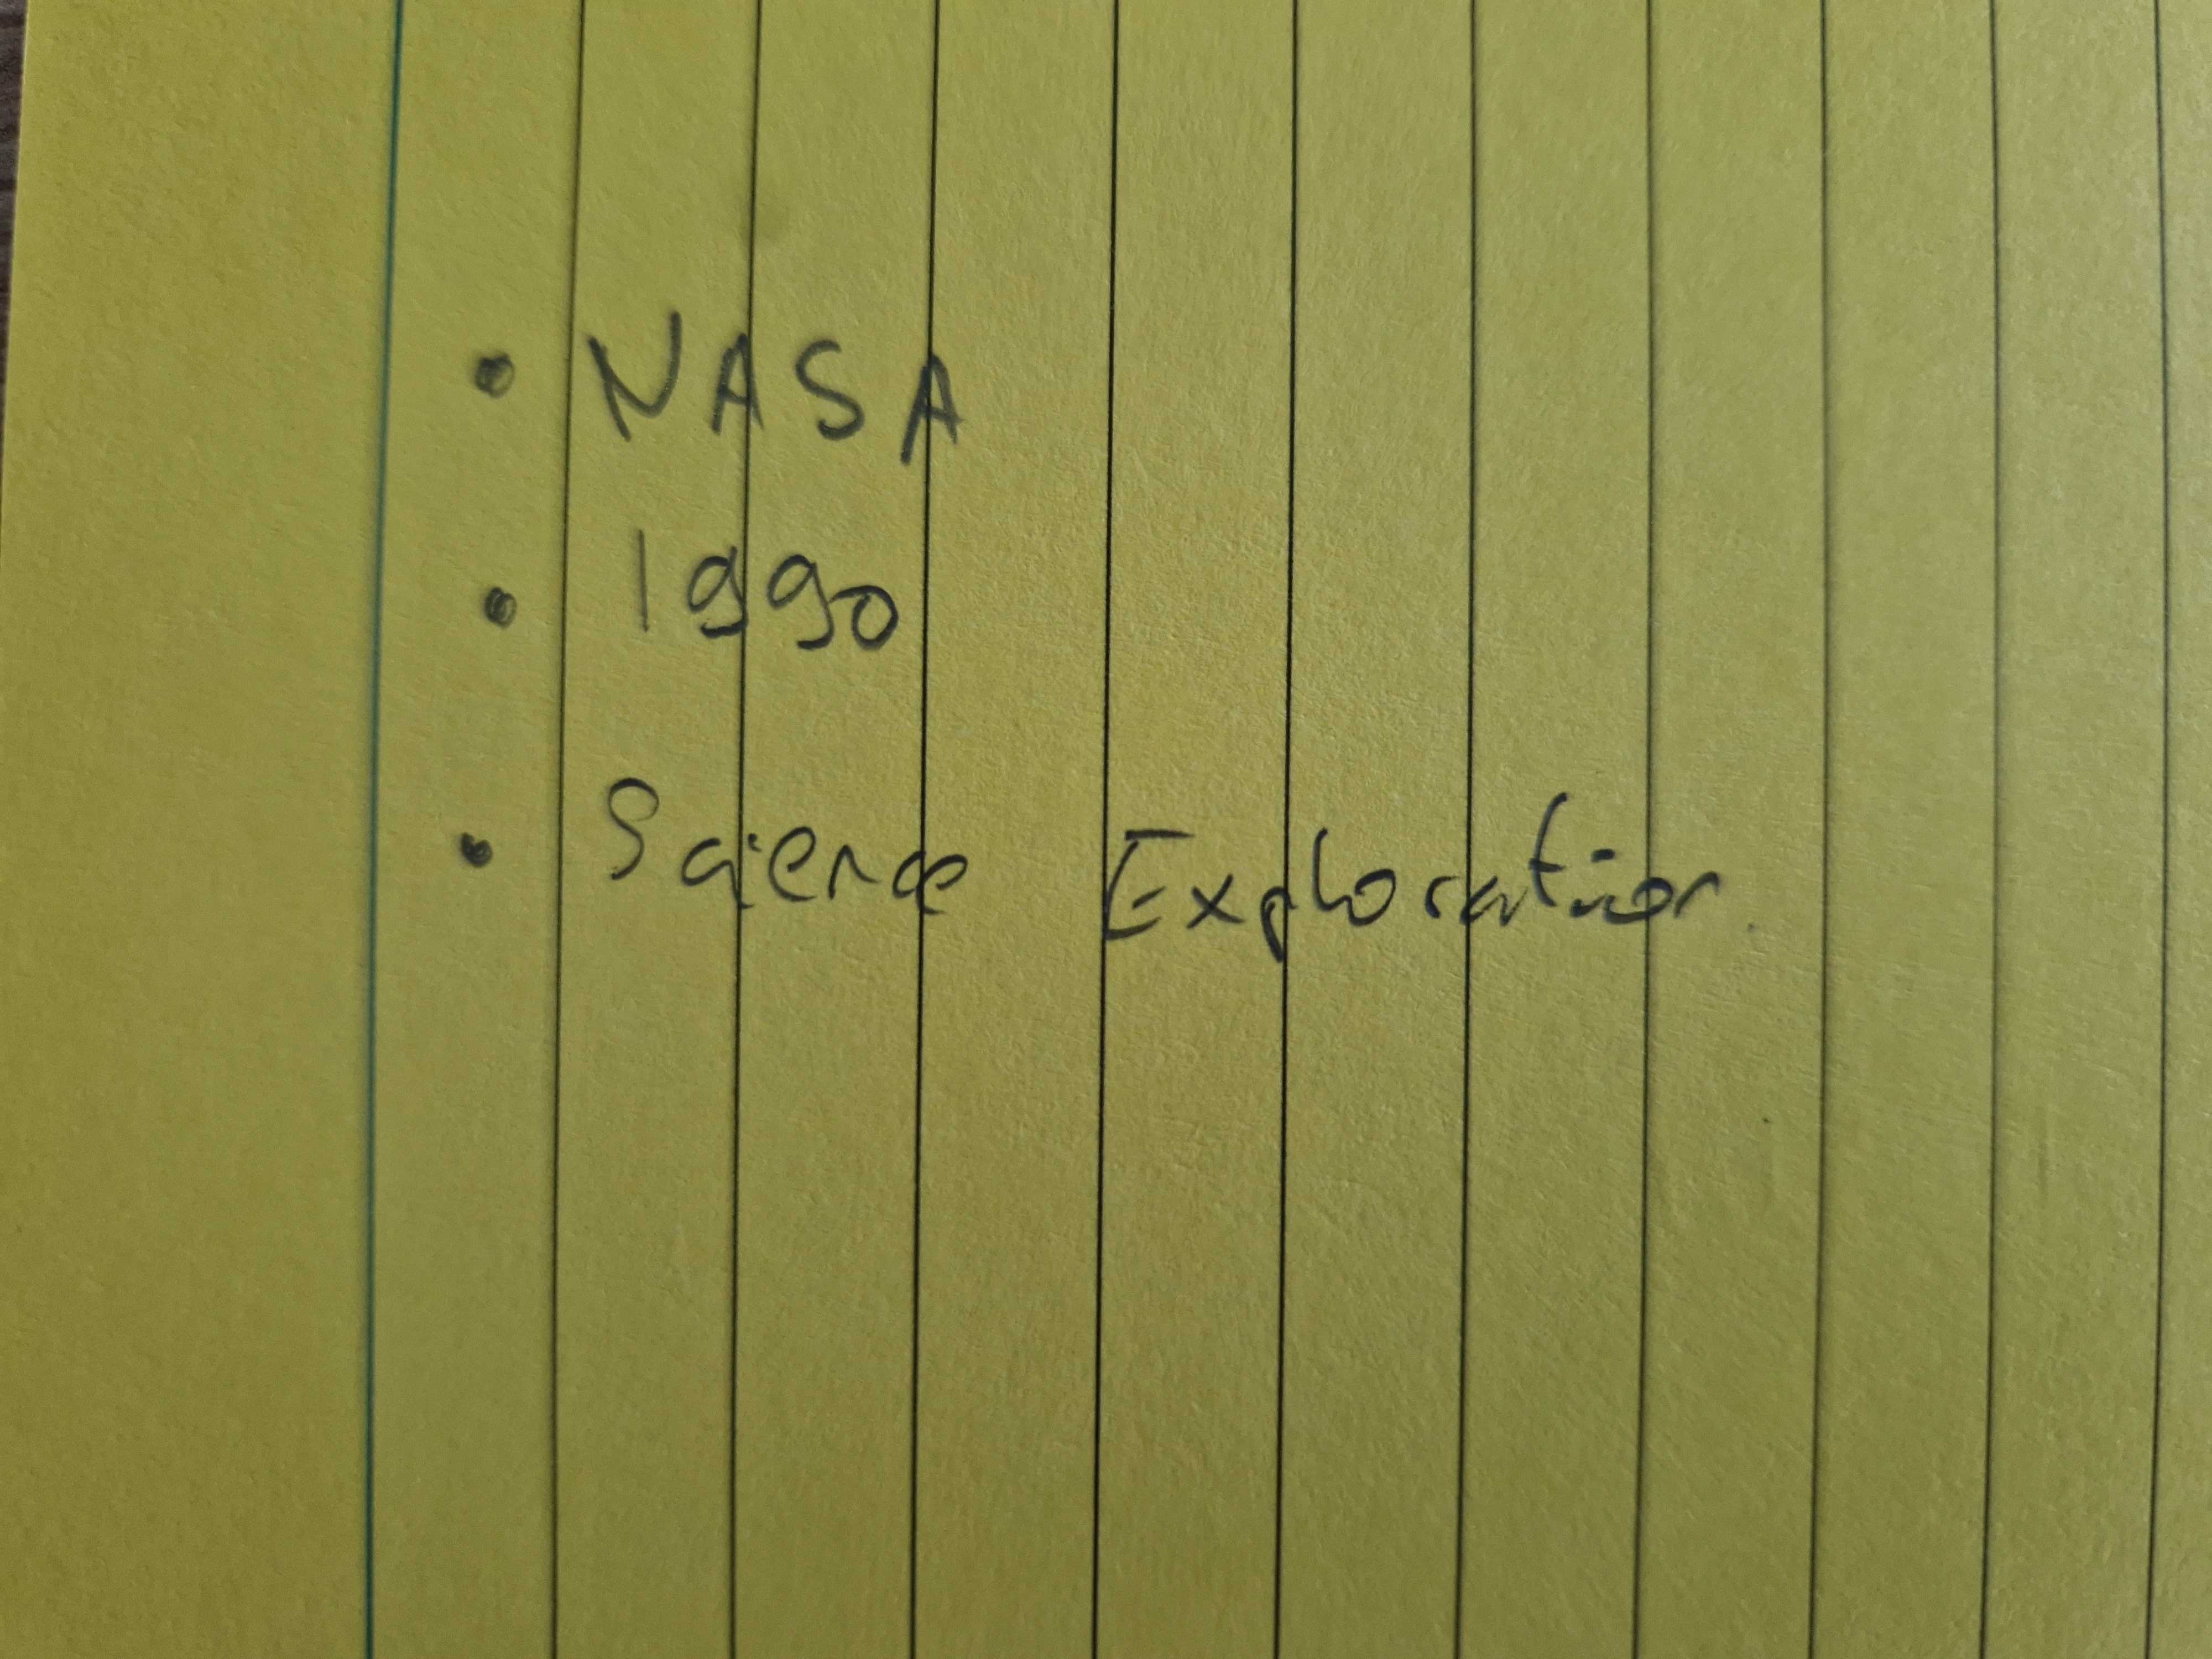 • NASA
• 1990
• Science Exploration.